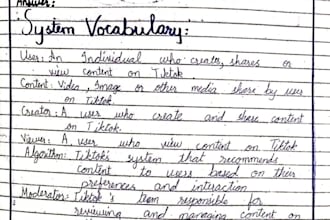 Answer:
System Vocabulary:
User: An Individual who creates, shares or
view content on Tiktok
Content: Video, Image or other media share by user
on Tiktok.
Creator: A user who create and share content
on Tiktok.
Viewer: A user who view content on Tiktok
Algorithm: Tiktok's system that recommends
content to users based on their
preferences and interaction
Moderator: Tiktok's team reponsible for
reviewing and managing content on